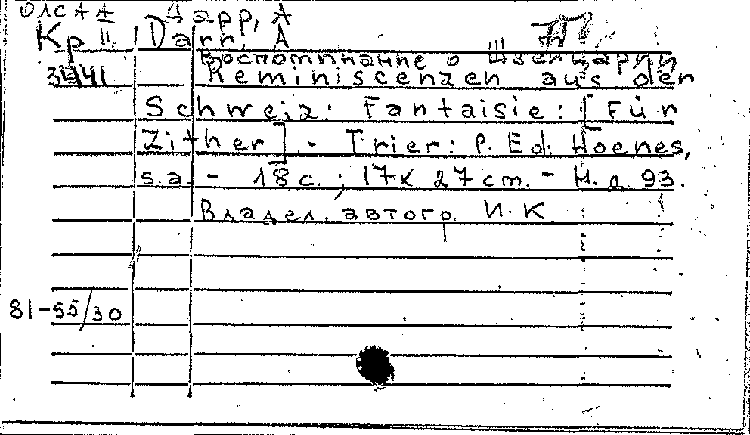 Дарр, А
Кр II Darr, A
Воспоминание о Швейцарии
3441 Reminiscenzen aus den
Schweiz: Fantaisie: [Für
Zither] - Trier: P. Ed. Hoenes,
s.a. - 18 с.; 17 x 27 cm. - Н.д. 93.
Владел. автогр. И. К
81-55/30